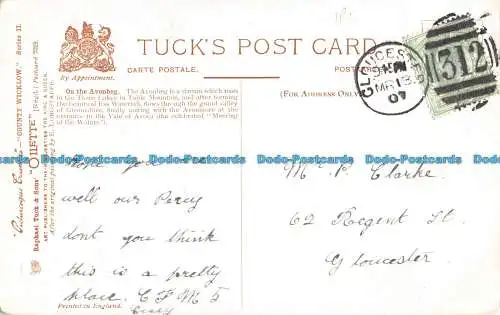 TUCK'S POST CARD
CARTE POSTALE.
By Appointment.
(FOR ADDRESS ONLY)
On the Avonbeg. The Avonbeg is a stream which rises
in the
Table Mountain, and after forming
the beautiful Ess Waterfall, flows through the grand valley
of Glenmalure, finally uniting with the Avonmore at the
entrance to the Vale of Avoca (the celebrated "Meeting
of the Waters").
Picturesque Counties "COUNTY WICKLOW," Series II.
Raphael Tuck & Sons' "OILETTE" [Regd.] Postcard 7929.
ART PUBLISHERS TO THEIR MAJESTIES THE KING & QUEEN.
After the original painting by
GLOUCESTER
MR 13
07
312
Hope you are
well our Percy
dont you think
this is a pretty
place.
Printed in England.
Clarke.
62 Regent St
Gloucester
Dodo-Postcards.Co
Dodo-Postcards.Co
Dodo-Postcards.Co
Dodo-Postcards.Co